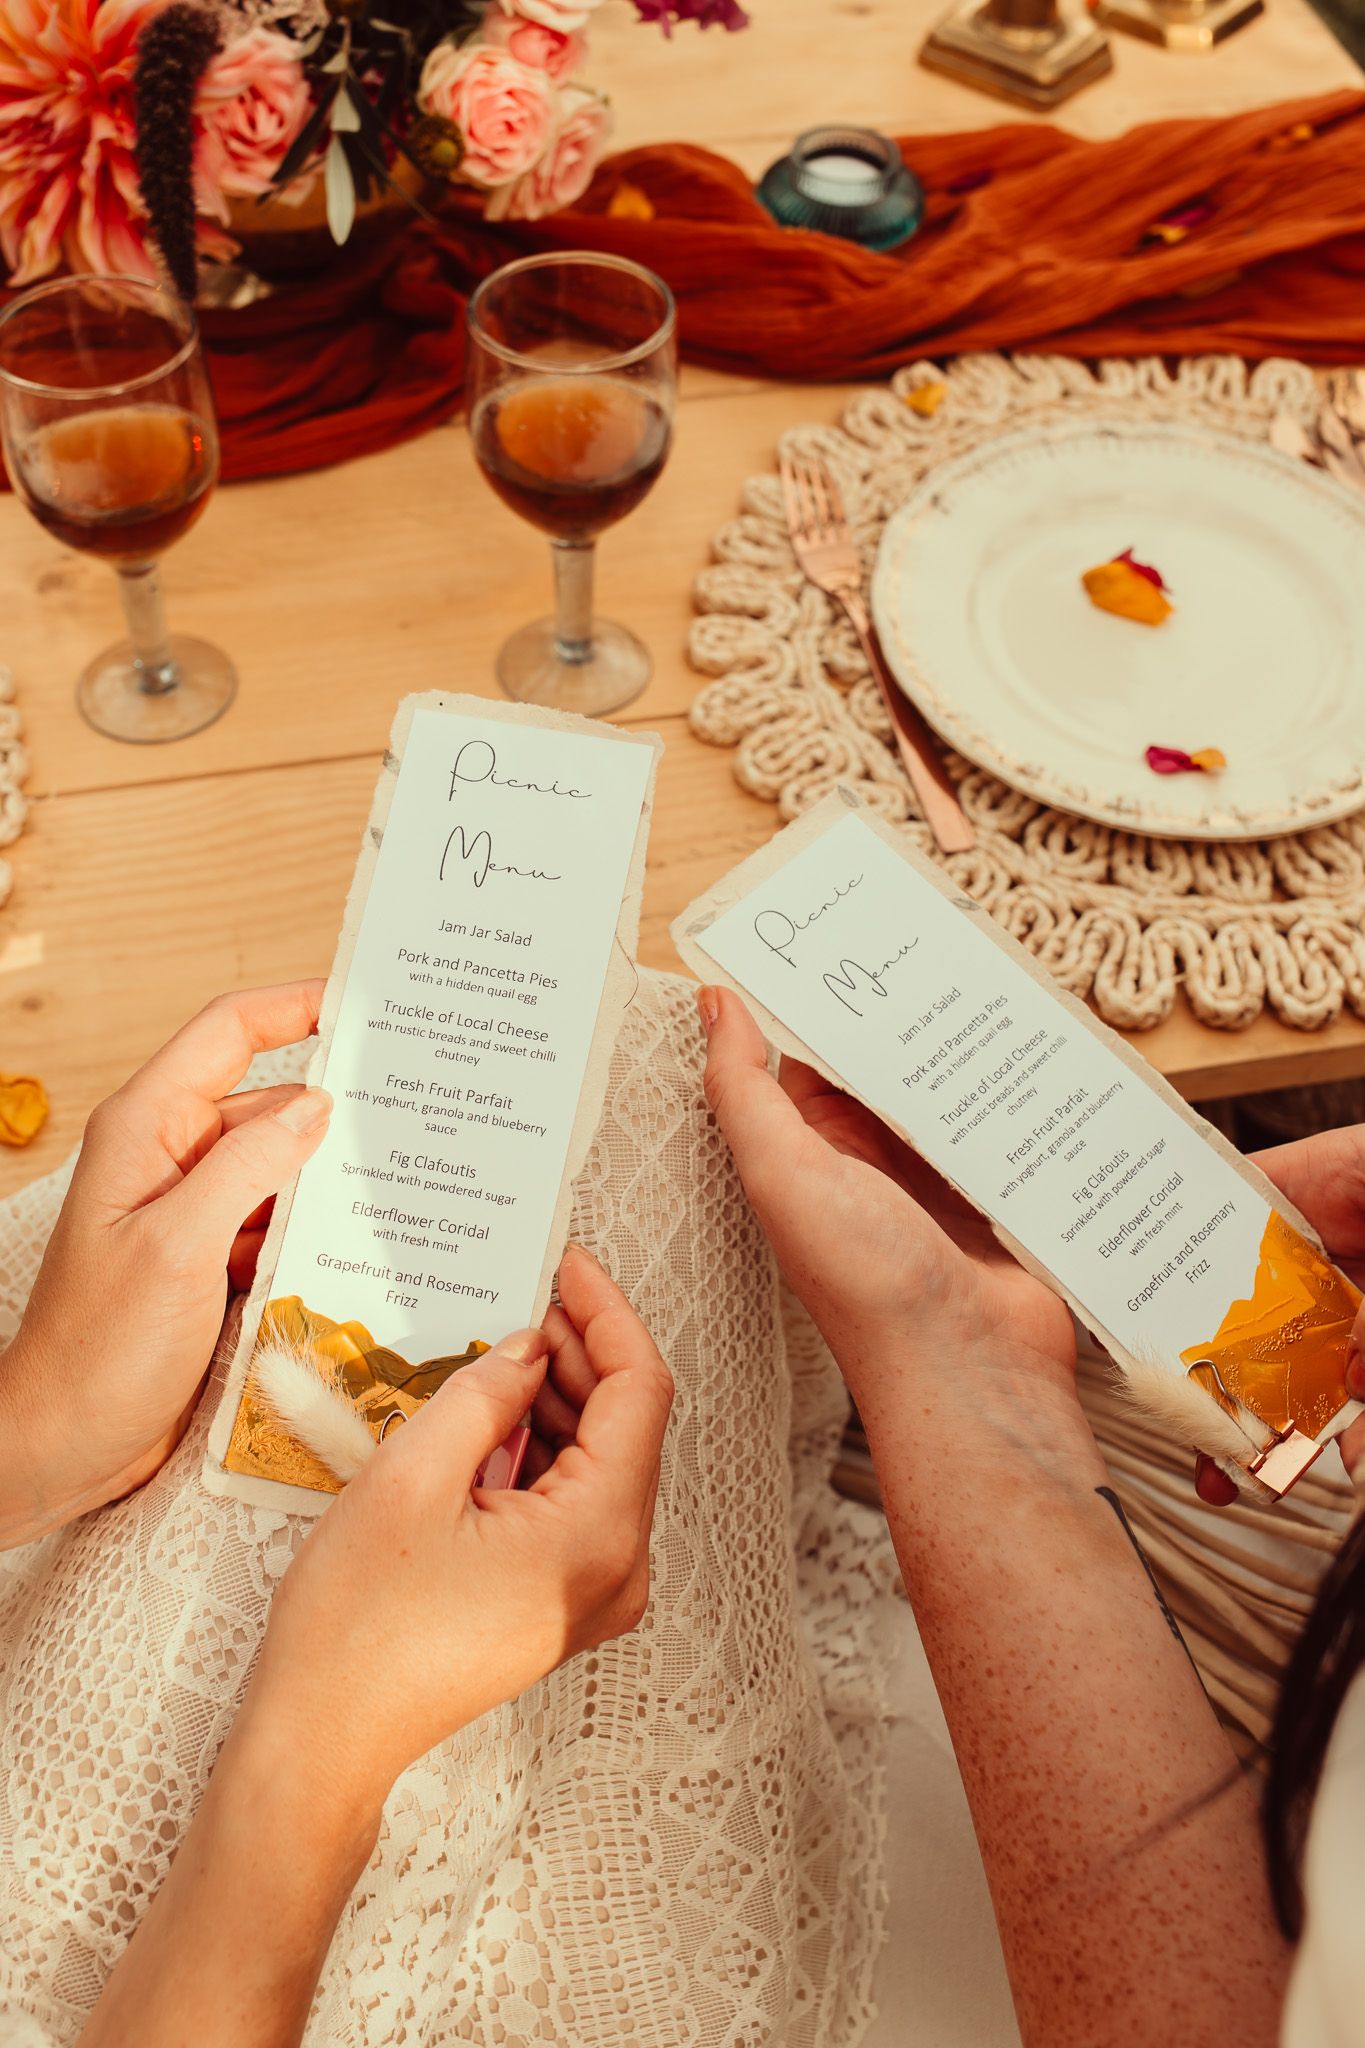 Picnic
Menu
Jam Jar Salad
Pork and Pancetta Pies
with a hidden quail egg
Truckle of Local Cheese
with rustic breads and sweet chilli
chutney
Fresh Fruit Parfait
with yoghurt, granola and blueberry
sauce
Fig Clafoutis
Sprinkled with powdered sugar
Elderflower Coridal
with fresh mint
Grapefruit and Rosemary
Frizz
Picnic
Menu
Jam Jar Salad
Pork and Pancetta Pies
with a hidden quail egg
Truckle of Local Cheese
with rustic breads and sweet chilli
chutney
Fresh Fruit Parfait
with yoghurt, granola and blueberry
sauce
Fig Clafoutis
Sprinkled with powdered sugar
Elderflower Coridal
with fresh mint
Grapefruit and Rosemary
Frizz